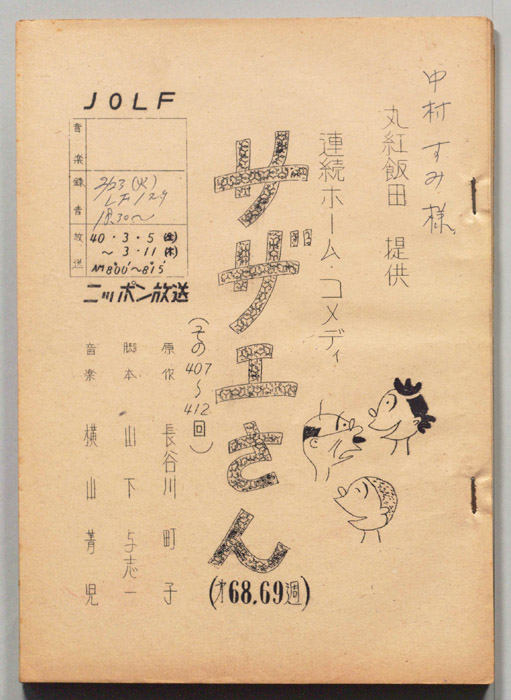 中村すみ様
丸紅飯田 提供
連続ホーム・コメディ
サザエさん
(その407~412回)
(才68.69週)
原作 長谷川町子
脚本 山下与志一
音楽 横山菁児
JOLF
音楽録音
2/23(火)
18.30~
放送
40・3・5(金)
~3・11(木)
AM8:00'~8:15'
ニッポン放送